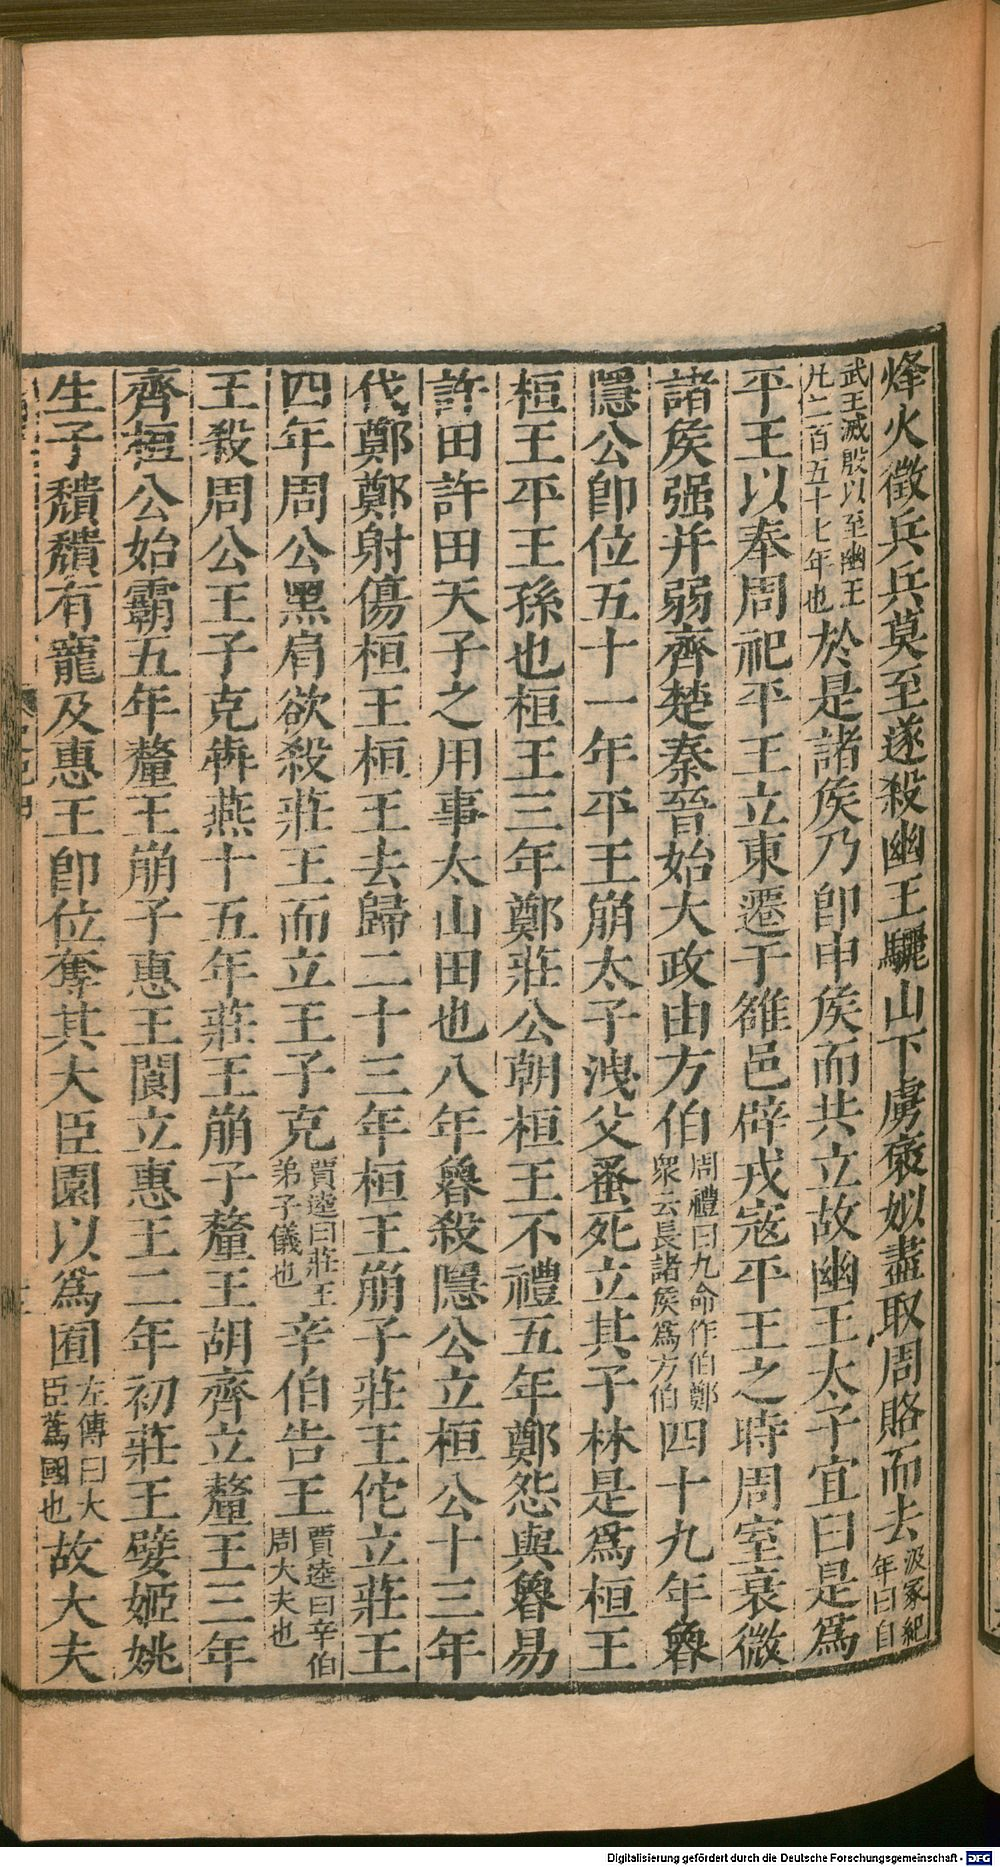 烽火徵兵兵莫至遂殺幽王驪山下虜褒姒盡取周賂而去汲冢紀年曰自
武王滅殷以至幽王凡二百五十七年也於是諸侯乃卽申侯而共立故幽王太子宜曰是爲
平王以奉周祀平王立東遷于雒邑辟戎寇平王之時周室衰微
諸侯强并弱齊楚秦晉始大政由方伯周禮曰九命作伯鄭衆云長諸侯爲方伯四十九年魯
隱公卽位五十一年平王崩太子洩父蚤死立其子林是爲桓王
桓王平王孫也桓王三年鄭莊公朝桓王不禮五年鄭怨與魯易
許田許田天子之用事太山田也八年魯殺隱公立桓公十三年
伐鄭鄭射傷桓王桓王去歸二十三年桓王崩子莊王佗立莊王
四年周公黑肩欲殺莊王而立王子克賈逵曰莊王弟子儀也辛伯告王賈逵曰辛伯周大夫也
王殺周公王子克犇燕十五年莊王崩子釐王胡齊立釐王三年
齊桓公始霸五年釐王崩子惠王閬立惠王二年初莊王嬖姬姚
生子穨穨有寵及惠王卽位奪其大臣園以爲囿左傳曰大臣蔿國也故大夫
Digitalisierung gefördert durch die Deutsche Forschungsgemeinschaft - DFG